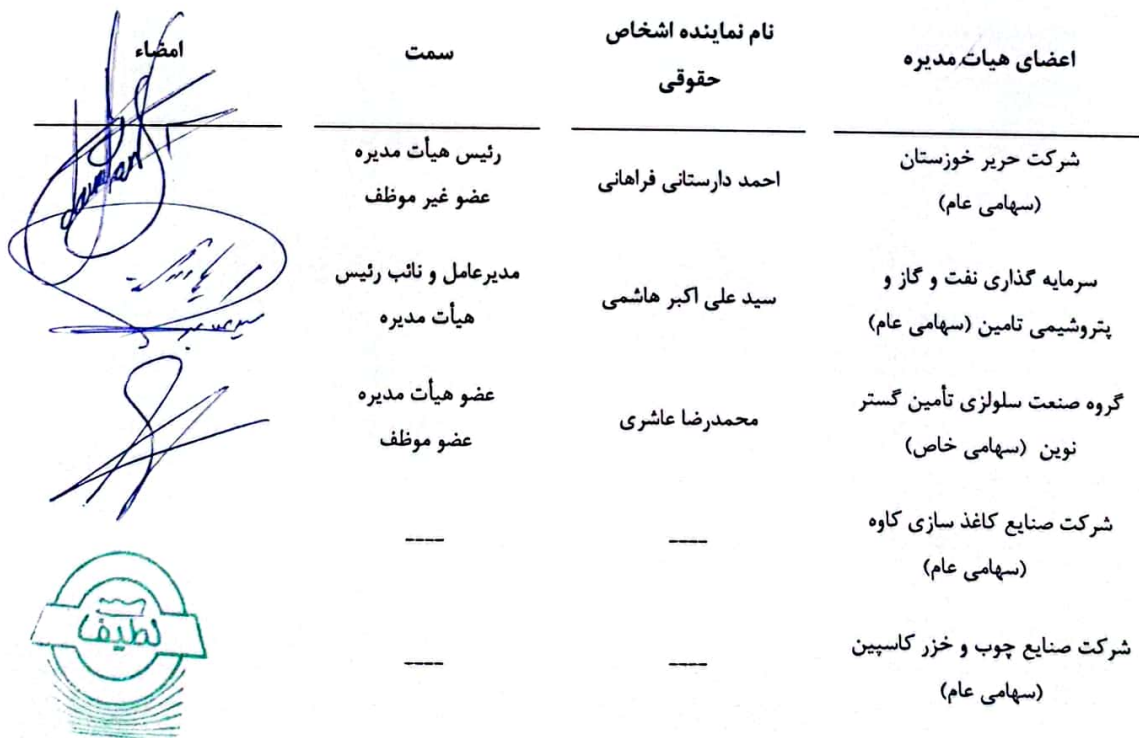 اعضای هیات مدیره
نام نماینده اشخاص
حقوقی
سمت
امضاء
شرکت حریر خوزستان
(سهامی عام)
احمد دارستانی فراهانی
رئیس هیأت مدیره
عضو غیر موظف
سرمایه گذاری نفت و گاز و
پتروشیمی تامین (سهامی عام)
سید علی اکبر هاشمی
مدیرعامل و نائب رئیس
هیأت مدیره
گروه صنعت سلولزی تأمین گستر
نوین (سهامی خاص)
محمدرضا عاشری
عضو هیأت مدیره
عضو موظف
شرکت صنایع کاغذ سازی کاوه
(سهامی عام)
----
----
شرکت صنایع چوب و خزر کاسپین
(سهامی عام)
----
----
لطیف